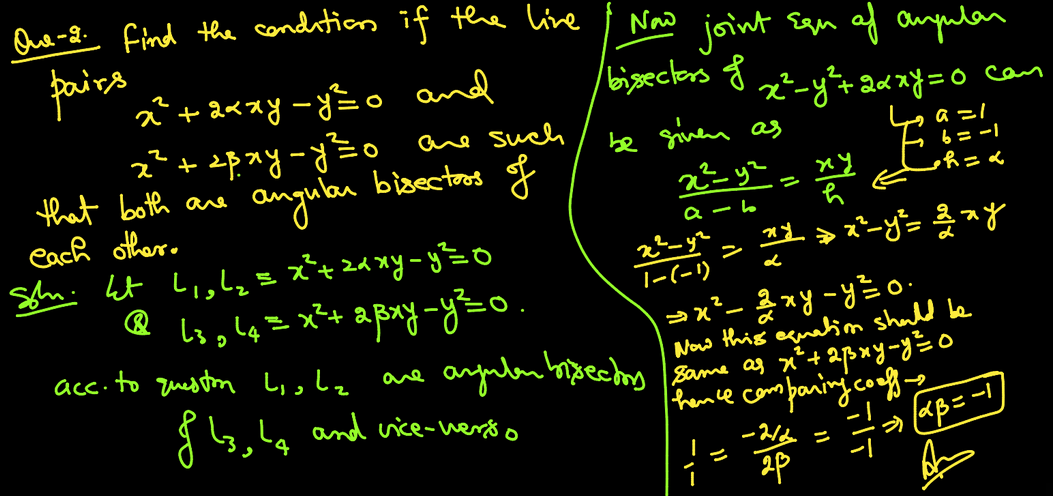 Que-2. Find the condition if the line
pairs
x² + 2αxy - y² = 0 and
x² + 2βxy - y² = 0 are such
that both are angular bisectors of
each other.
Soln. Let L₁, L₂ ≡ x² + 2αxy - y² = 0
& L₃, L₄ ≡ x² + 2βxy - y² = 0.
acc. to question L₁, L₂ are angular bisectors
of L₃, L₄ and vice-versa
Now joint Eqn of angular
bisectors of x² - y² + 2αxy = 0 can
be given as
↳ a = 1
→ b = -1
→ h = α
(x² - y²)/(a - b) = xy/h ⇐
(x² - y²)/(1-(-1)) = xy/α ⇒ x² - y² = (2/α) xy
⇒ x² - (2/α) xy - y² = 0.
Now this equation should be
same as x² + 2βxy - y² = 0
hence comparing coeff →
1/1 = (-2/α)/(2β) = -1/-1 ⇒ αβ = -1